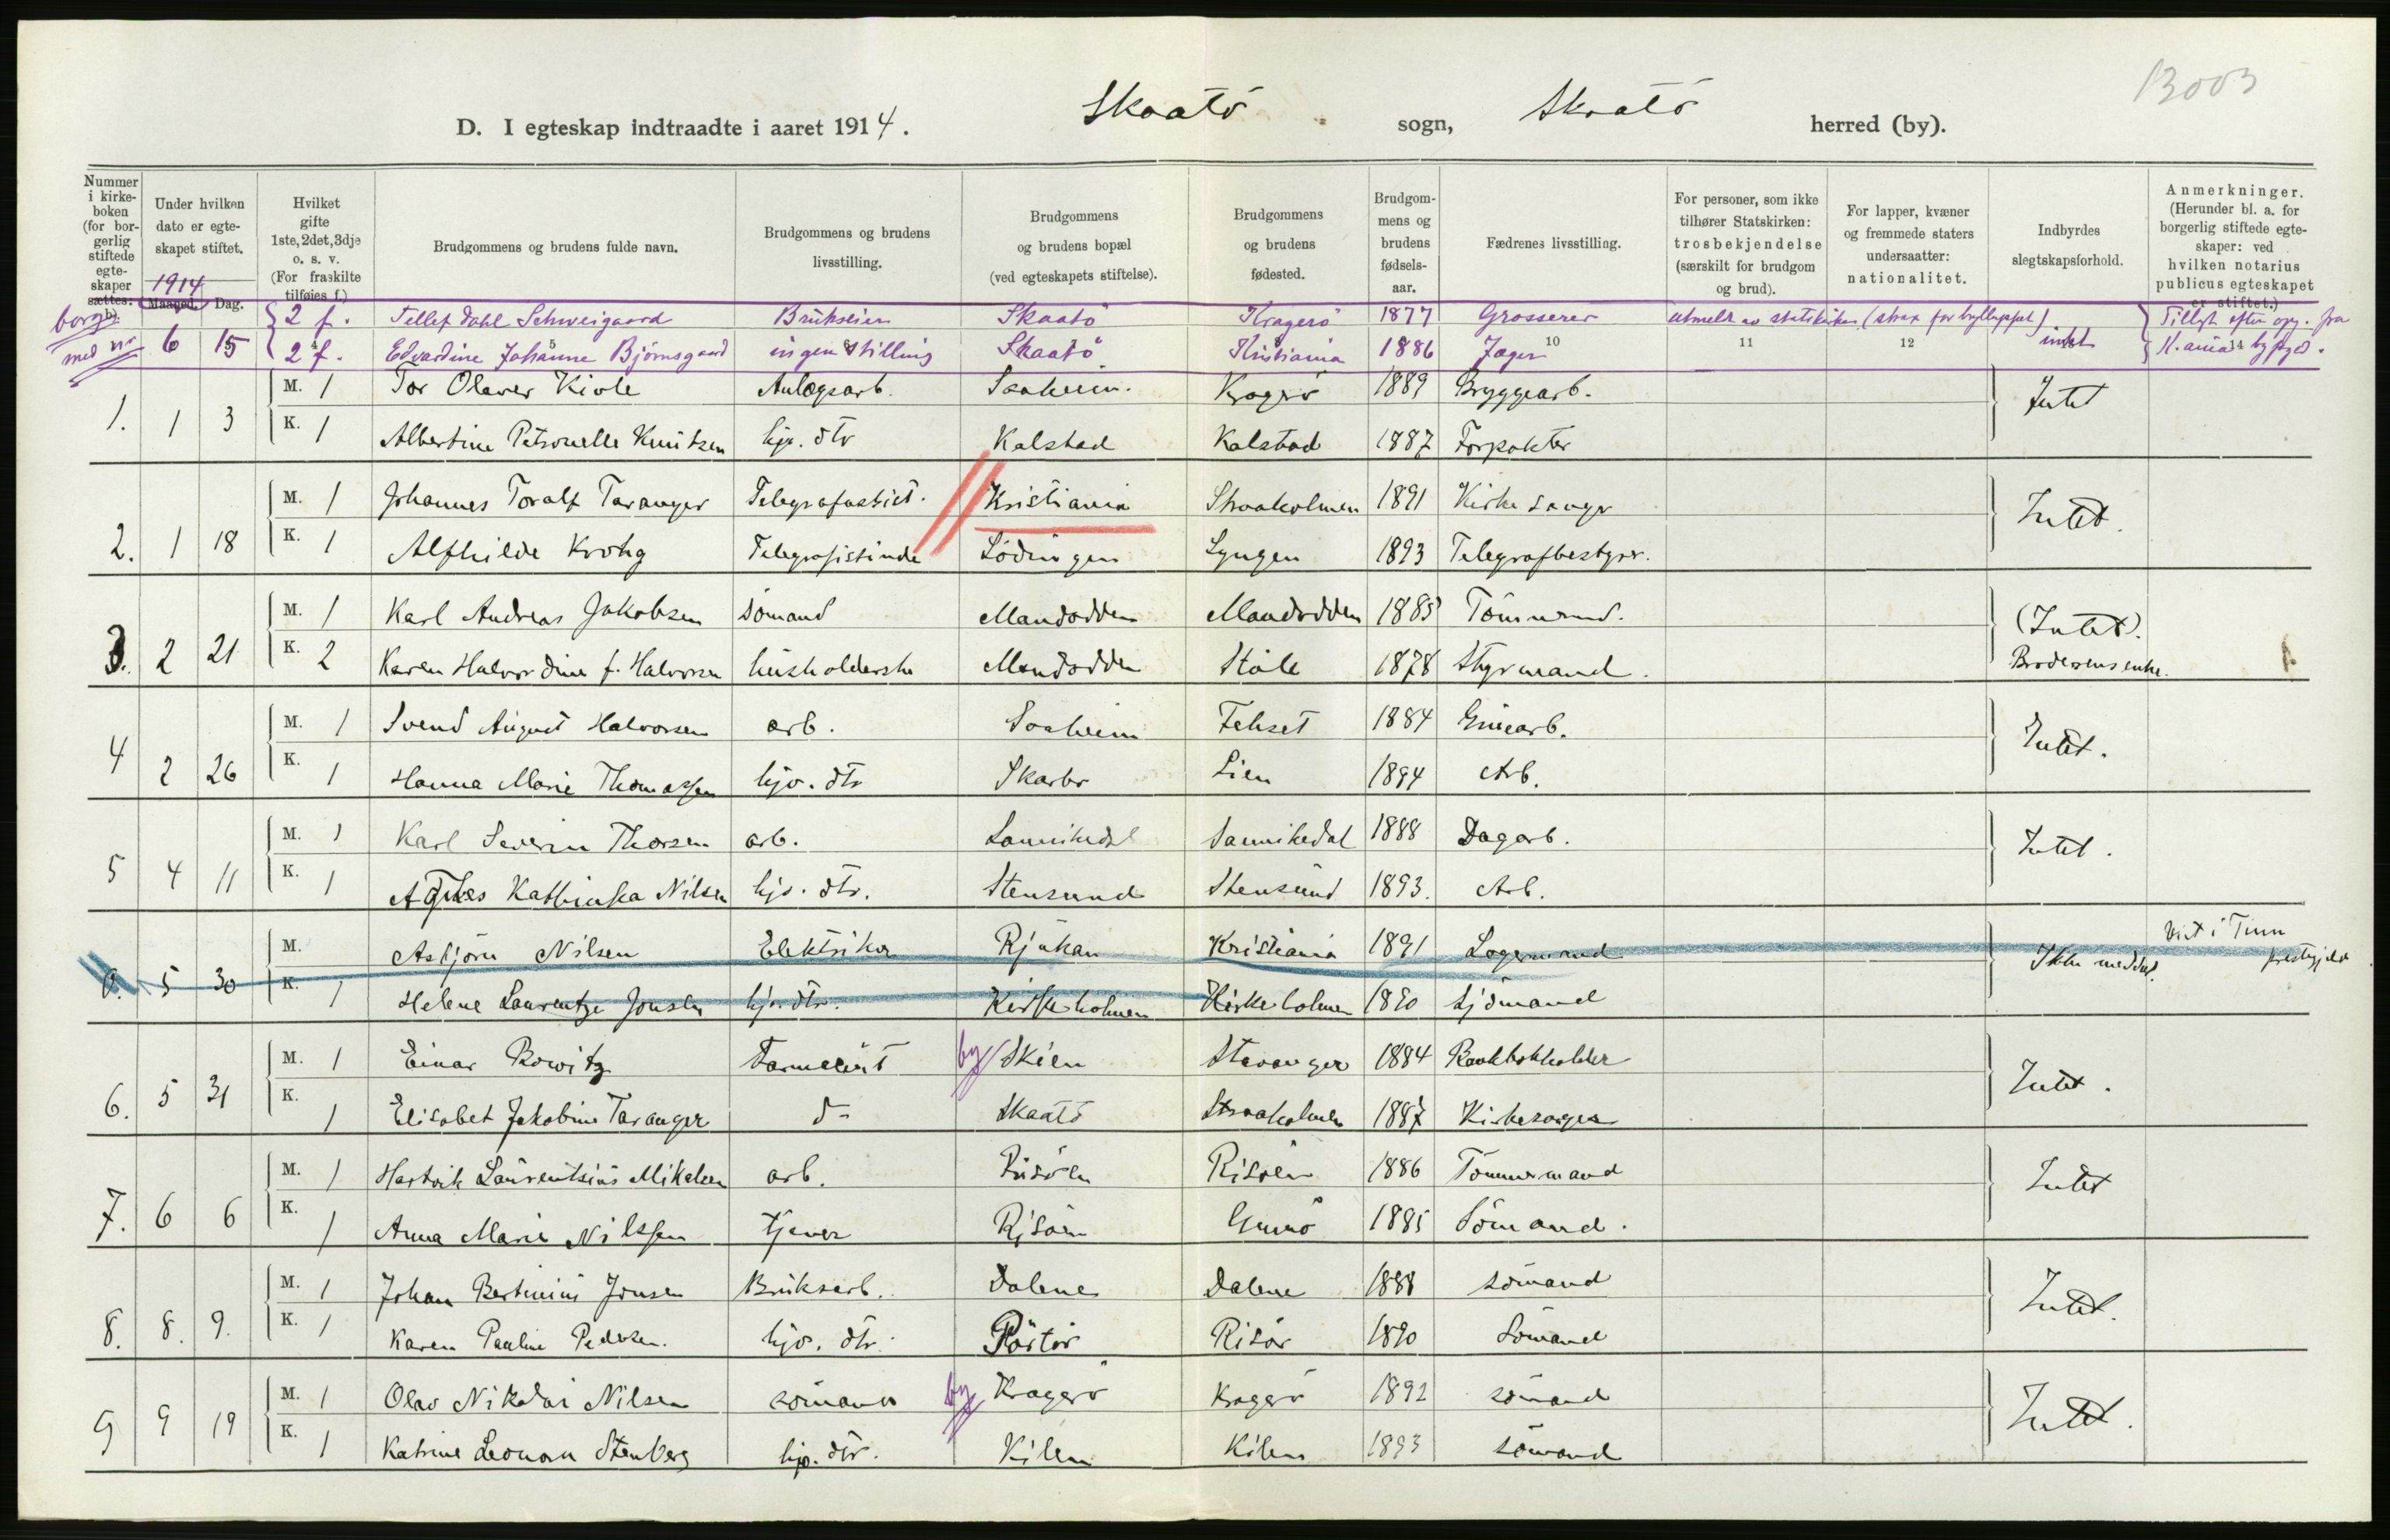 13003
D. I egteskap indtraadte i aaret 1914. Skaatö sogn, Skaatö herred (by).
Nummer i kirkeboken (for borgerlig stiftede egteskaper sættes: b).
Under hvilken dato er egteskapet stiftet.
1914
Maaned. Dag.
Hvilket gifte 1ste, 2det, 3dje o. s. v. (For fraskilte tilføies f.)
Brudgommens og brudens fulde navn.
Brudgommens og brudens livsstilling.
Brudgommens og brudens bopæl (ved egteskapets stiftelse).
Brudgommens og brudens fødested.
Brudgommens og brudens fødselsaar.
Fædrenes livsstilling.
For personer, som ikke tilhører Statskirken: trosbekjendelse (særskilt for brudgom og brud).
For lapper, kvæner og fremmede staters undersaatter: nationalitet.
Indbyrdes slegtskapsforhold.
Anmerkninger. (Herunder bl. a. for borgerlig stiftede egteskaper: ved hvilken notarius publicus egteskapet er stiftet.)
borg. 2 f. Tellef Dahl Schweigaard Brukseier Skaatö Kragerö 1877 Grosserer utmeldt av statskirken (strax før bryllupet) Tillagt efter opg. fra
med nr 6 15 2 f. Edvardine Johanne Björnsgaard ingen stilling Skaatö Kristiania 1886 Jæger 10 11 12 intet K.ania bypgd.
M. 1 Tor Olaver Kivle Anlægsarb. Saaheim. Kragerö 1889 Bryggearb.
1. 1 3 Intet
K. 1 Albertine Petronelle Knutsen hjv. dtr Kalstad Kalstad 1887 Forpakter
M. 1 Johannes Toralf Taranger Telegrafassist. Kristiania Straaholmen 1891 Kirkesanger
2. 1 18 Intet.
K. 1 Alfhilde Krohg Telegrafistinde Lödingen Lyngen 1893 Telegrafbestyrer.
M. 1 Karl Andreas Jakobsen sömand Mandodden Mandodden 1885 Tömmermd.
3. 2 21 (Intet).
K. 2 Karen Halvordine f. Halvorsen husholderske Mandodden Stöle 1878 Styrmand. Broderens enke.
M. 1 Svend August Halvorsen arb. Saaheim Fehset 1884 Grubearb.
4 2 26 Intet.
K. 1 Hanna Marie Thomassen hjv. dtr Skarbo Lien 1894 Arb.
M. 1 Karl Severin Thorsen arb. Sannikedal Sannikedal 1888 Dagarb.
5 4 11 Intet.
K. 1 Agnes Kathinka Nilsen hjv. dtr. Stensund Stensund 1893. Arb.
M. Asbjörn Nilsen Elektriker Rjukan Kristiania 1891 Lagermand Viet i Tinn
0. 5 30 Ikke meddelt. prestegjeld.
K. 1 Helene Laurentze Jonsen hjv. dtr. Kirkeholmen Kirkeholmen 1890 Sjömand
M. 1 Einar Rowitz Farmaceut by Skien Stavanger 1884 Bankbokholder
6. 5 31 Intet.
K. 1 Elisabet Jakobine Taranger d- Skaatö Straaholmen 1887 Kirkesanger
M. 1 Hartvik Laurentsius Mikalsen arb. Risöen Risöen 1886 Tömmermand
7. 6 6 Intet
K. 1 Anna Marie Nilssen tjener Risöen Gumö 1885 Sömand.
M. 1 Johan Bertinius Jonsen Bruksarb. Dalene Dalene 1888 sömand
8. 8. 9. Intet.
K. 1 Karen Pauline Pedersen. hjv. dtr. Portör Risör 1890 Sömand
M. 1 Olav Nikolai Nilsen sömann by Kragerö Kragerö 1892 sömand
9 9 19 Intet.
K. 1 Katrine Leonora Stenberg hjv. dtr. Kilen Kilen 1893 sömand